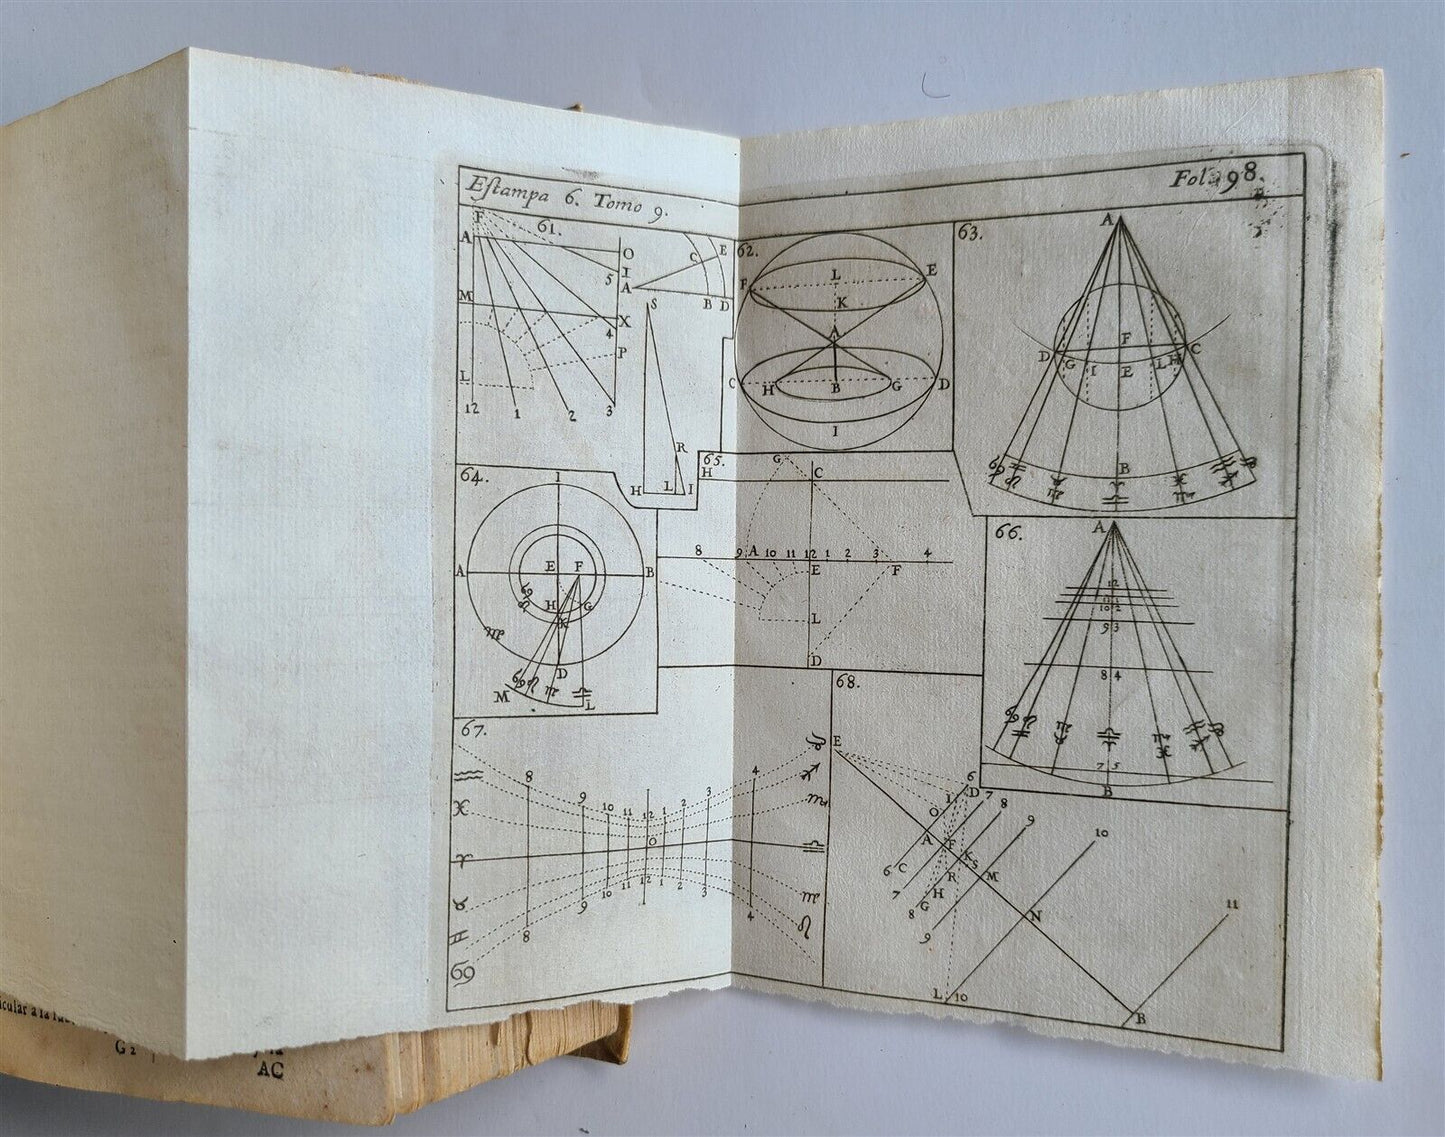 Eſtampa 6. Tomo 9.
Fol. 98.
61.
F
A
O
I
5
M
X
4
P
L
12 1 2 3
A C E
B D
S
R
H L I
62.
L E
F
K
A
C H B G D
I
63.
A
F
D G I E L H C
B
♋ ♌ ♍ ♎
64.
I
A E F B
H G
K
D
M L
65.
H G C
8 9 A 10 11 12 1 2 3 4
E F
L
D
66.
A
12
10 2
9 3
8 4
7 5
B
67.
8 9 10 11 12 1 2 3 4
♒ ♑
♓ ♐
♏
♈ O ♎
♉ ♍
♊ ♌
♋
8 9 10 11 12 1 2 3 4
68.
E
6
I D 7
O 8
A F 9
K S 10
6 C R M
7 H
8 G N 11
9
L. 10
B
icular a la
G 2
AC